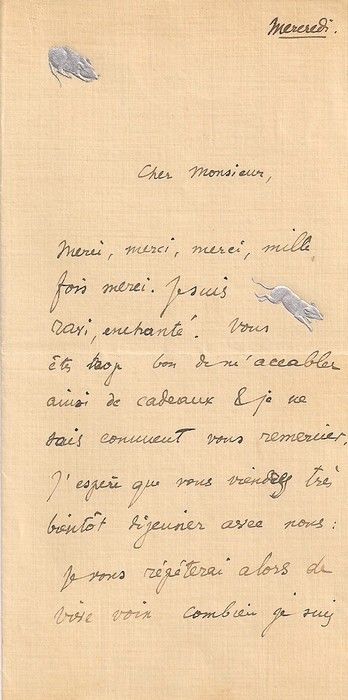 Mercredi.
Cher Monsieur,
Merci, merci, merci, mille
fois merci. Je suis
ravi, enchanté! Vous
êtes trop bon de m'accabler
ainsi de cadeaux & je ne
sais comment vous remercier.
J'espère que vous viendrez très
bientôt déjeuner avec nous :
je vous répéterai alors de
vive voix combien je suis